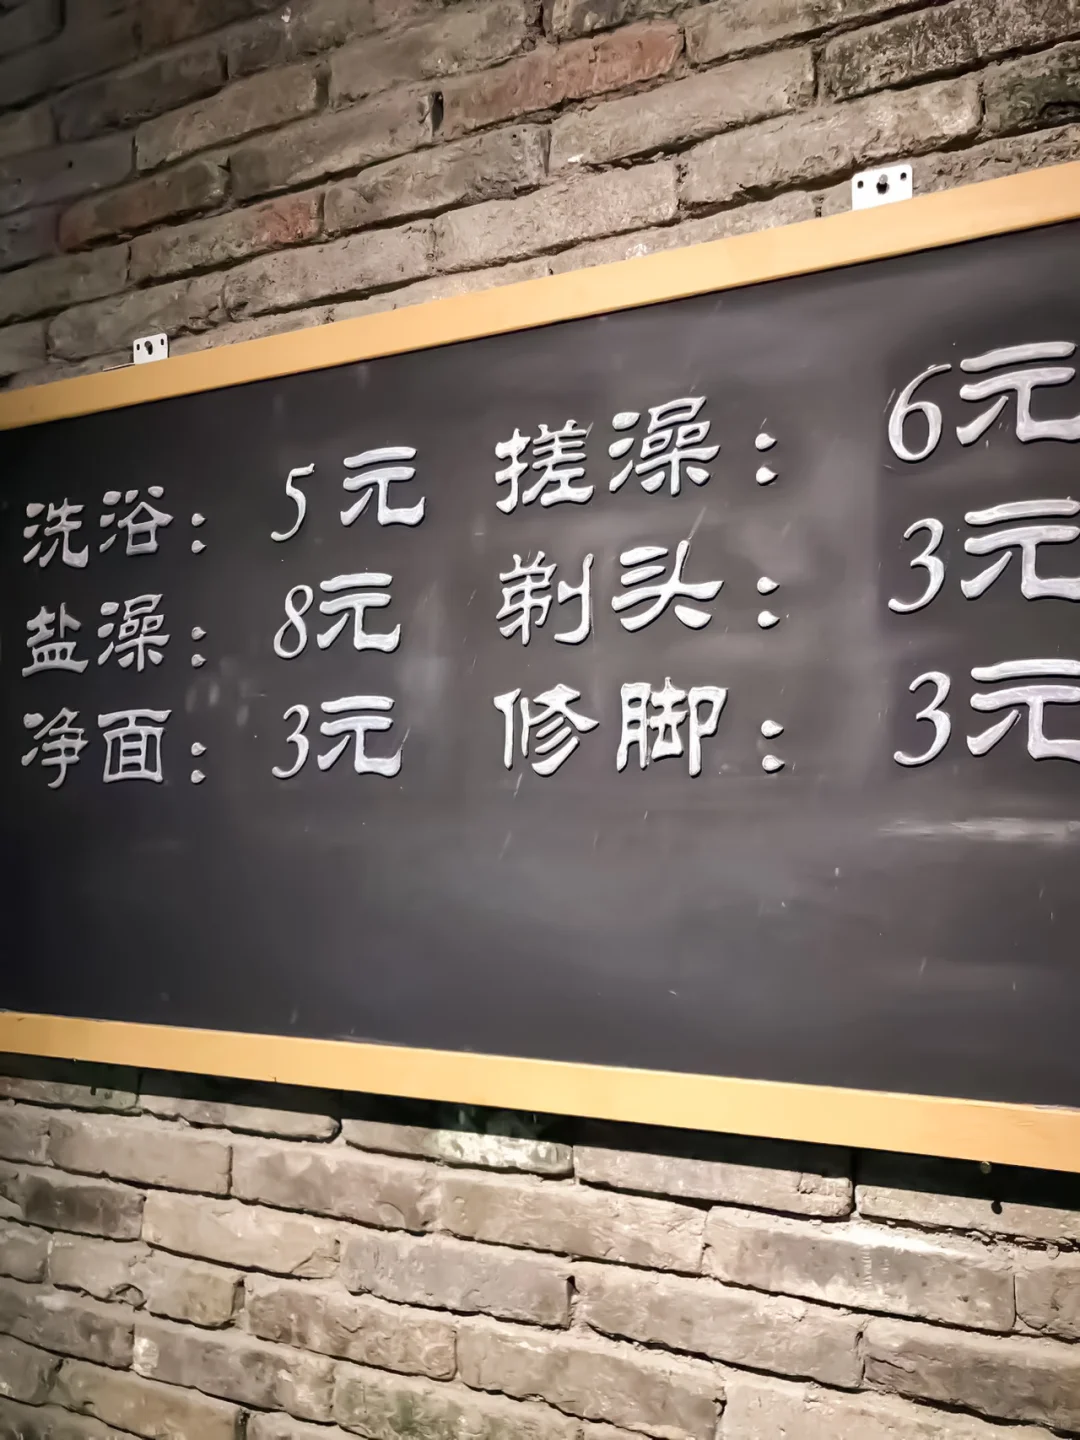 洗浴：5元
盐澡：8元
净面：3元
搓澡：6元
剃头：3元
修脚：3元